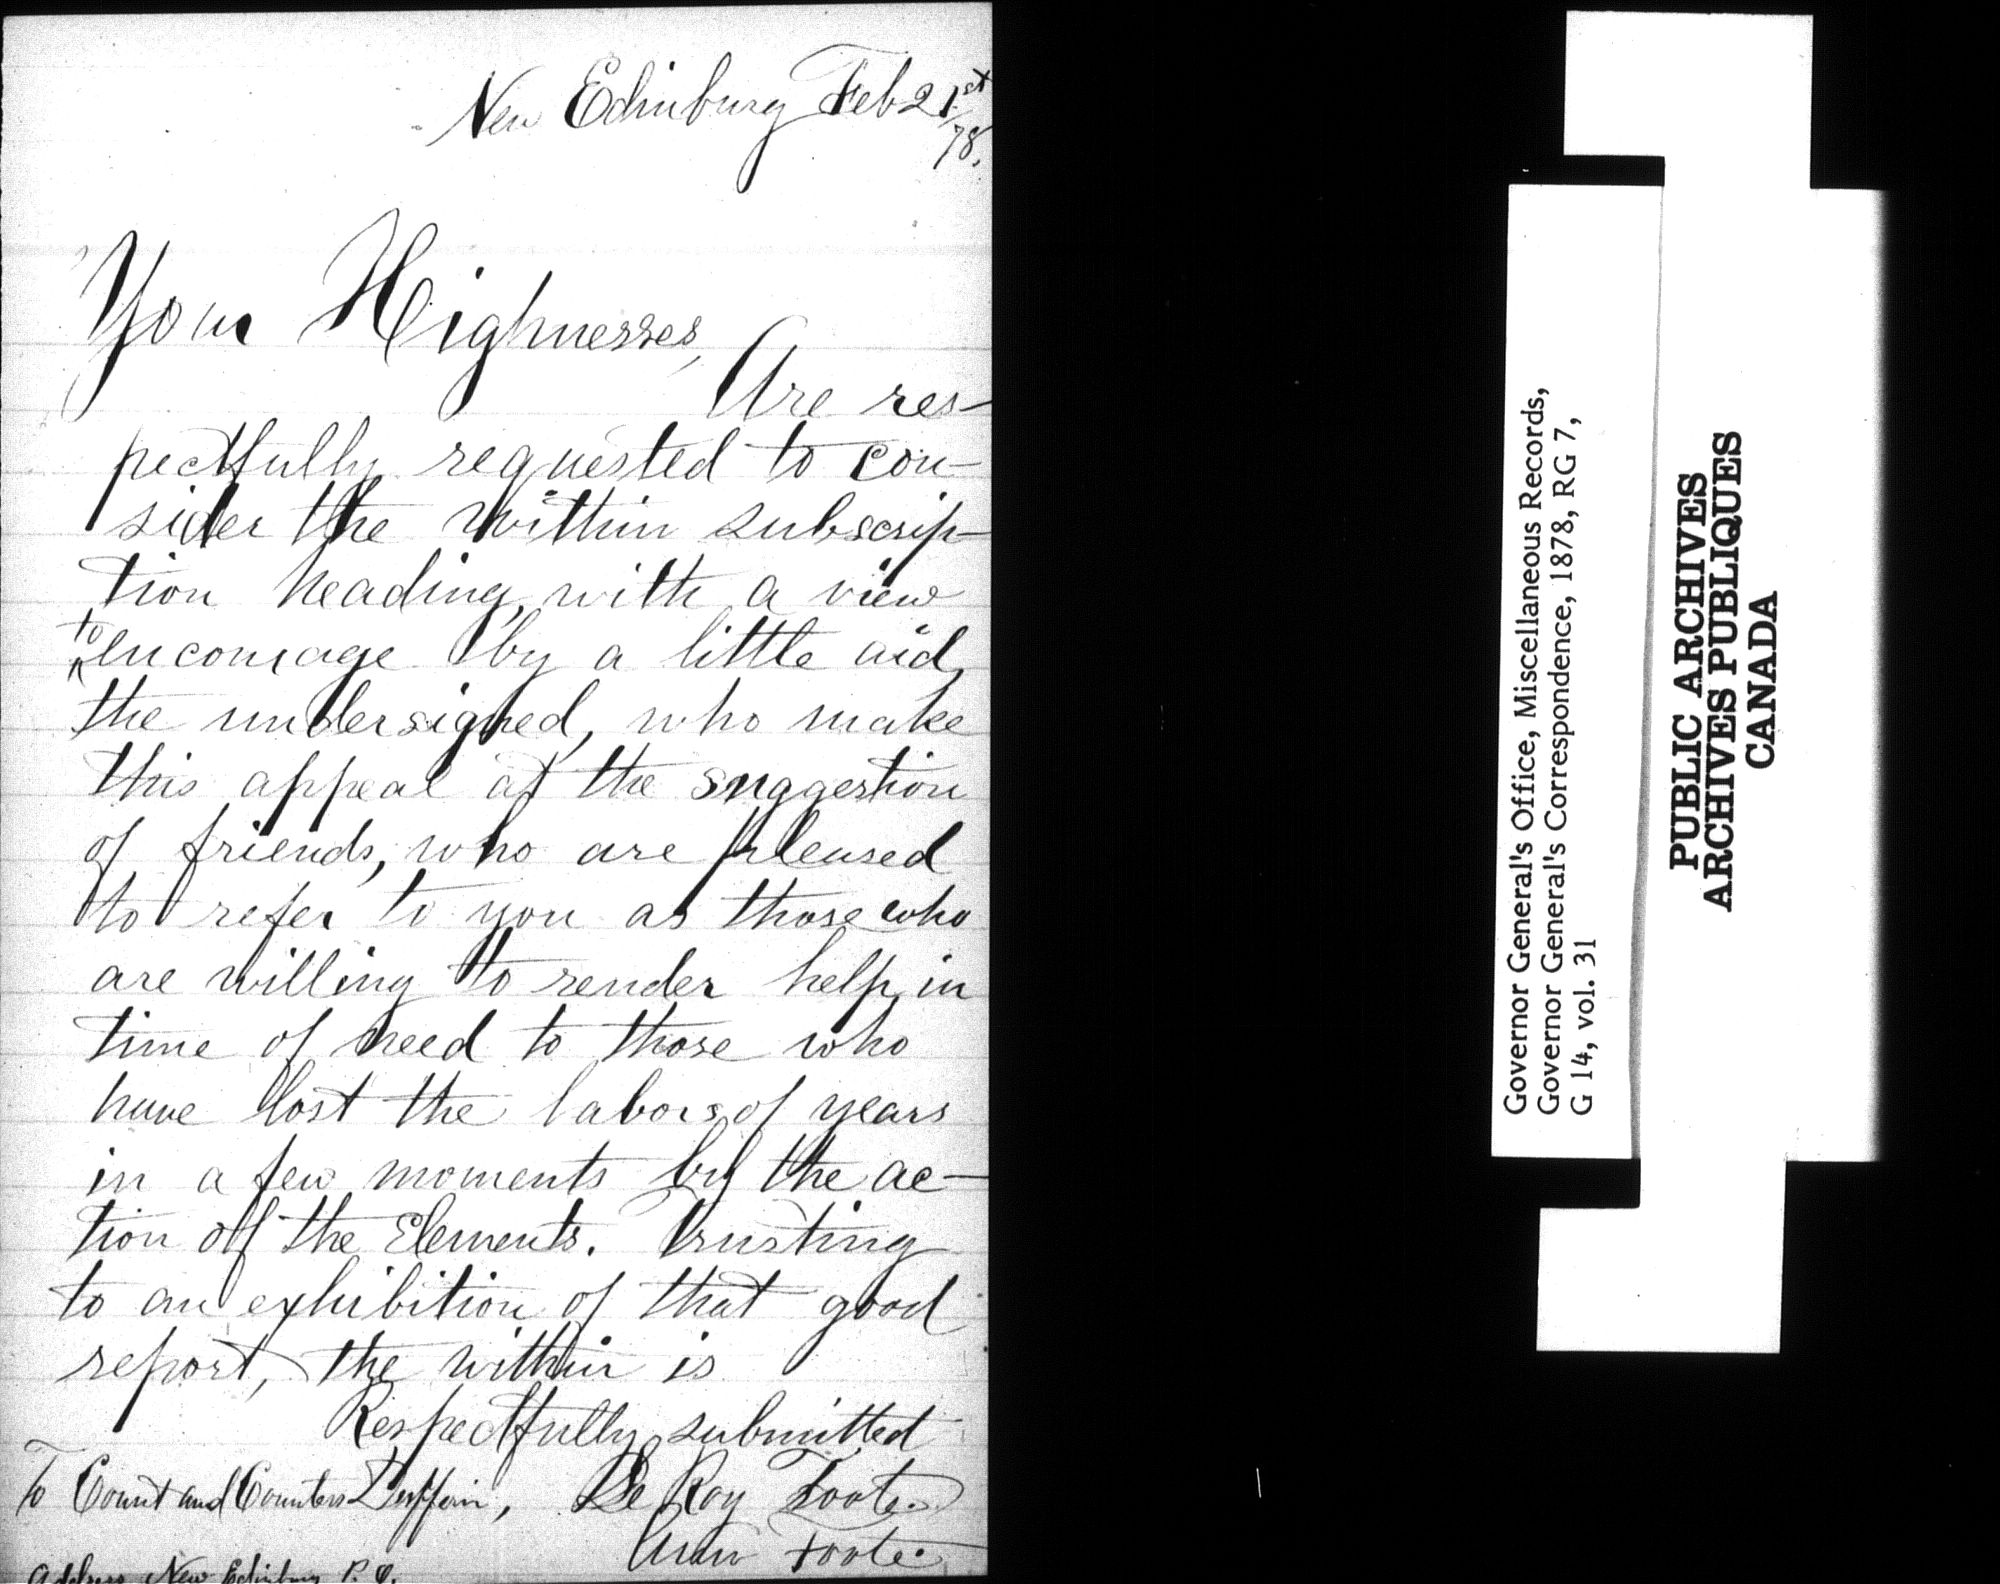 New Edinburg Feb 21st
/78.
Your Highnesses,
Are res-
pectfully requested to con-
sider the within subscrip-
tion heading, with a view
to
encourage by a little aid,
the undersigned, who make
this appeal at the suggestion
of friends, who are pleased
to refer to you as those who
are willing to render help in
time of need to those who
have lost the labors of years
in a few moments by the ac-
tion of the Elements. Trusting
to an exhibition of that good
report, the within is
Respectfully submitted
To Count and Countess Dufferin, Le Roy Foote.
Foote.
Address New Edinburg P. O.
Governor General's Office, Miscellaneous Records,
Governor General's Correspondence, 1878, RG 7,
G 14, vol. 31
PUBLIC ARCHIVES
ARCHIVES PUBLIQUES
CANADA